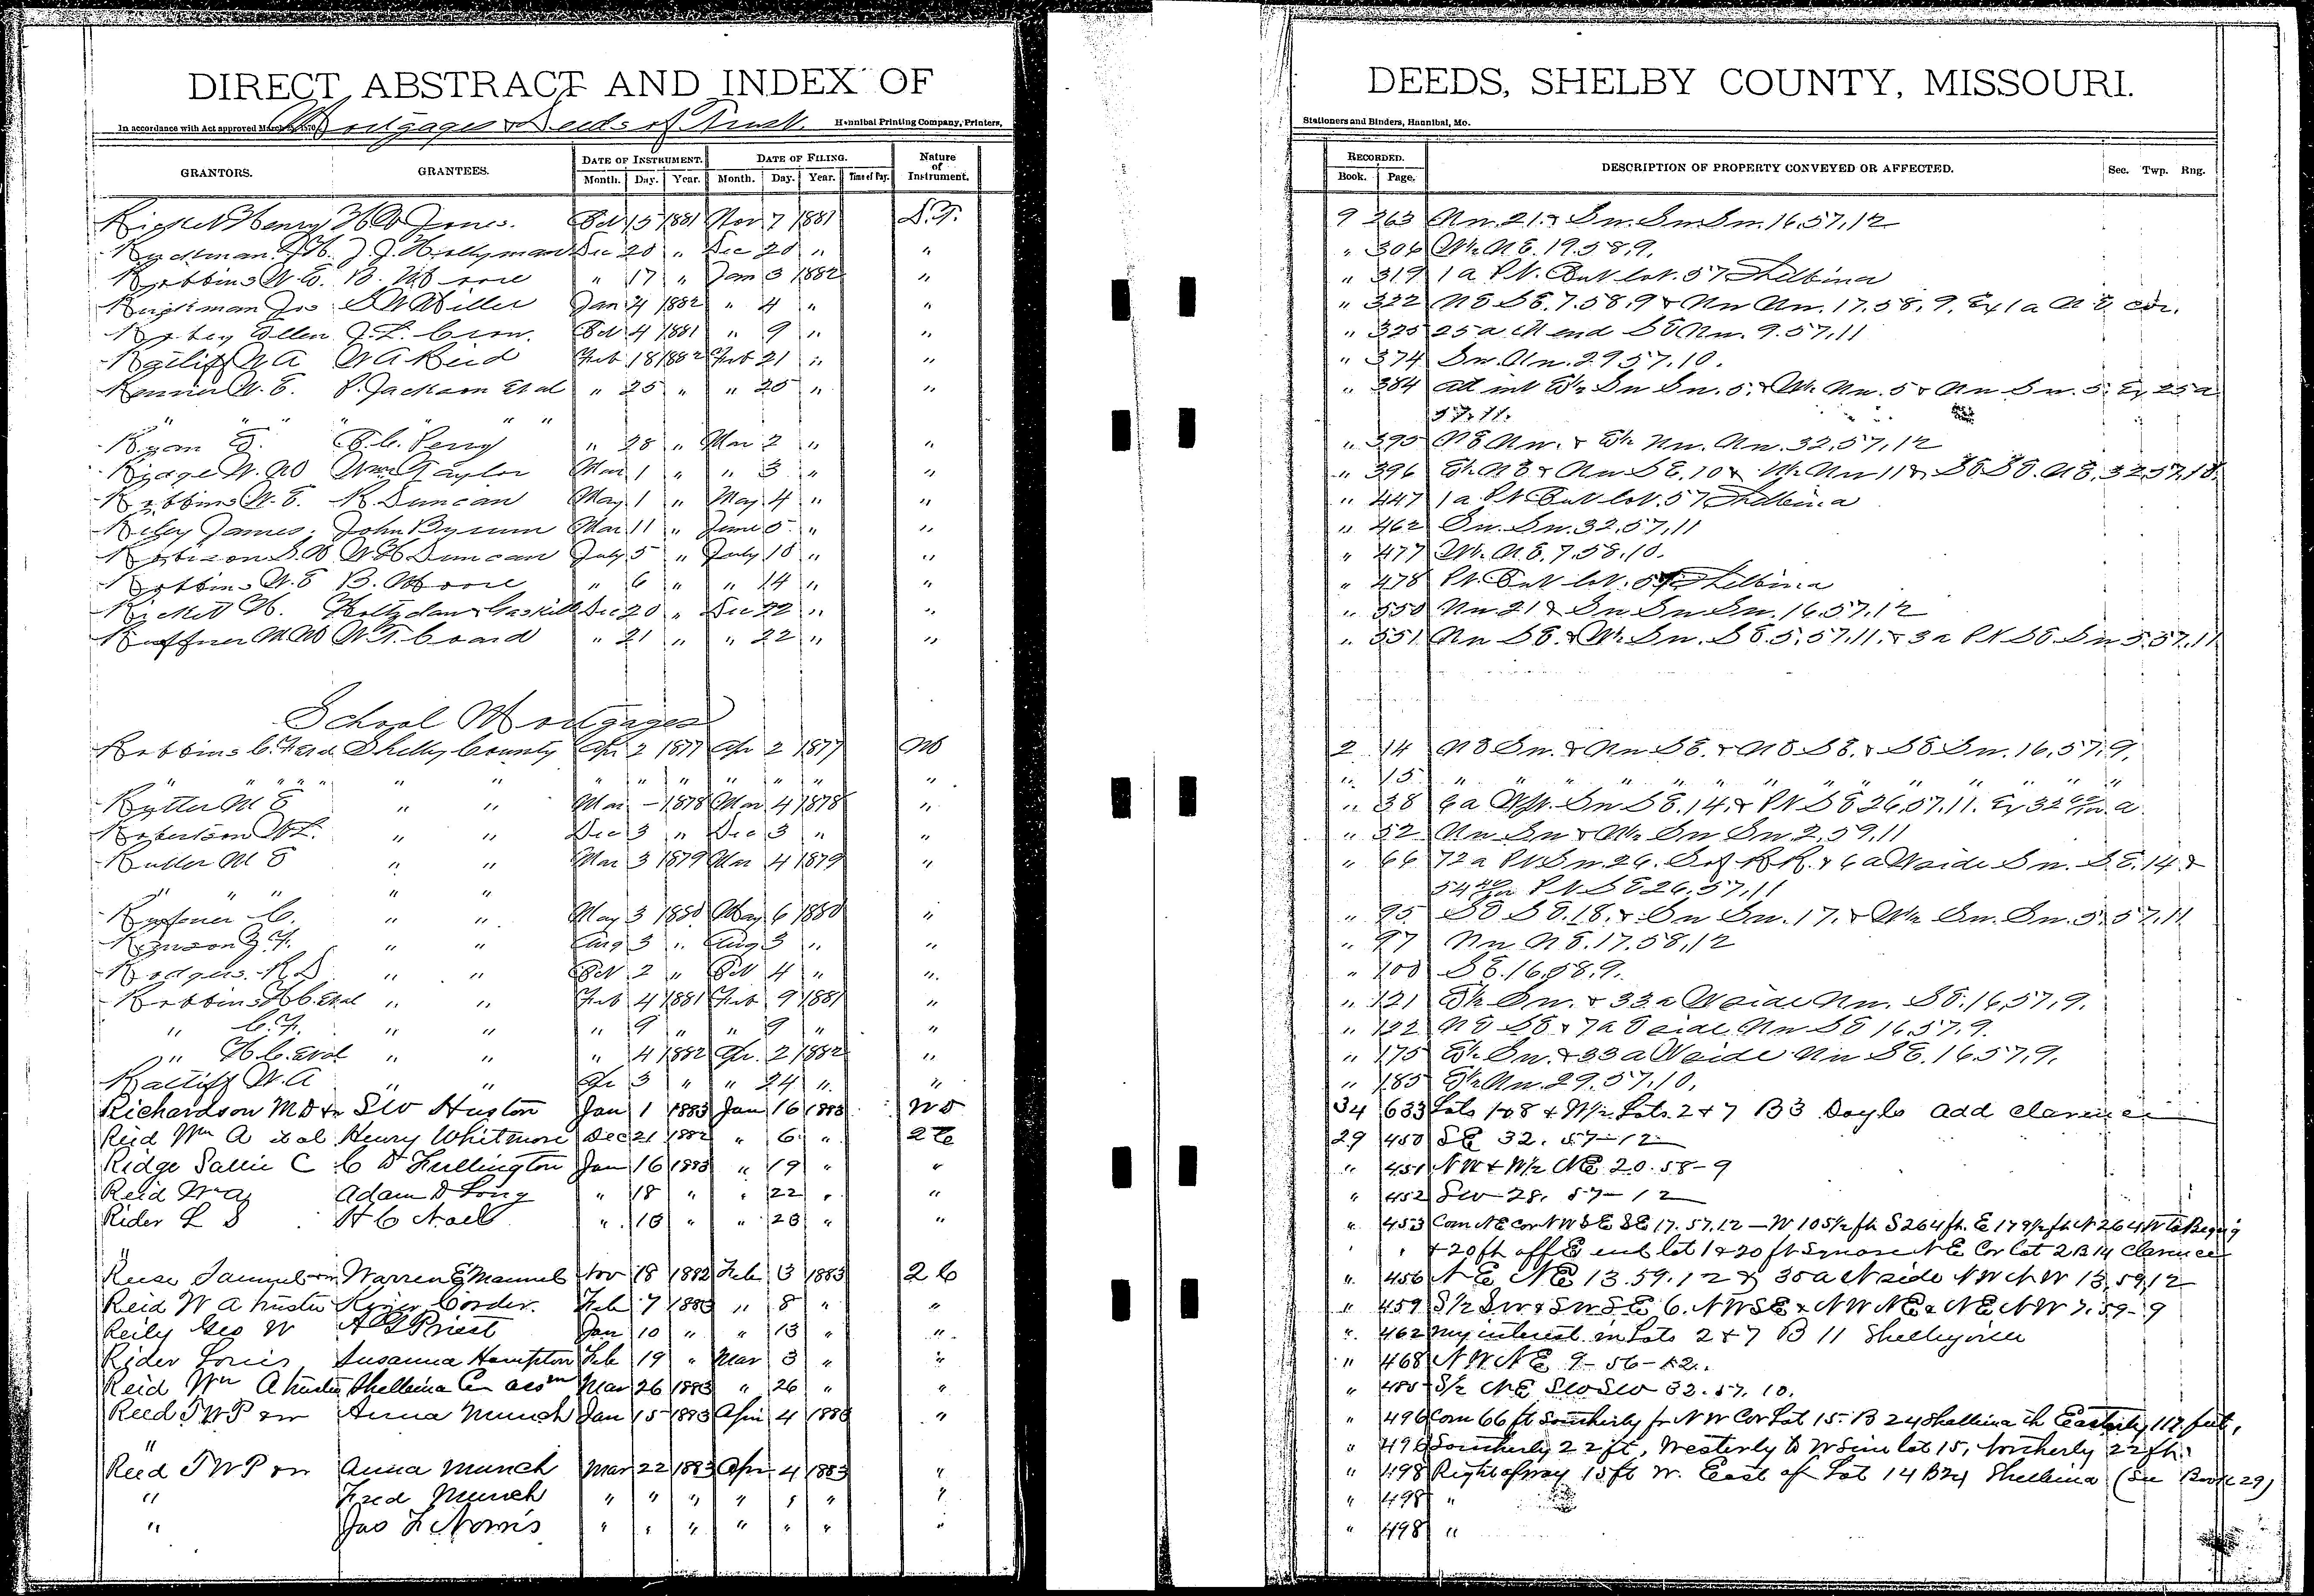 DIRECT ABSTRACT AND INDEX OF
Mortgages & Deeds of Trust.
In accordance with Act approved March 1870 Hannibal Printing Company, Printers,
GRANTORS. GRANTEES. DATE OF INSTRUMENT. DATE OF FILING. Nature of Instrument.
Month. Day. Year. Month. Day. Year. Time of Day.
Rickett Henry Jones. Oct 15 1881 Nov 7 1881 D.T.
J.J. Hollyman Dec 20 " Dec 20 " "
Robbins W.E. B. Moore " 17 " Jan 3 1882 "
Jos S W Miller Jan 4 1882 " 4 " "
Robey Allen J.L. Crow. Oct 4 1881 " 9 " "
Ratliff W A W A Reid Feb 18 1882 Feb 21 " "
W.E. P. Jackson et al " 25 " " 25 " "
" " " " "
Ryan Perry " 28 " Mar 2 " "
Ridge W. M Wm Taylor Mar 1 " " 3 " "
Robbins W.E. R. Duncan May 1 " May 4 " "
Riley James, John Bysum Mar 11 " June 5 " "
Robison W H Duncan July 5 " July 10 " "
Robbins W.E B. Moore " 6 " " 14 " "
Rickett H. Holtzclaw & Gaskill Dec 20 " Dec 22 " "
Ruffner M W W.T. Coard " 21 " " 22 " "
School Mortgages
Robbins C.F. Shelby County Apr 2 1877 Apr 2 1877 M
" " " " " " " " " " " " "
Rutter M E " " Mar - 1878 Mar 4 1878 "
Robertson W.L. " " Dec 3 " Dec 3 " "
Rutter M E " " Mar 3 1879 Mar 4 1879 "
" " " " "
Ruffner C. " " May 3 1880 May 6 1880 "
" " Aug 3 " Aug 3 " "
Rodgers R D " " Oct 2 " Oct 4 " "
Robbins H C. et al " " Feb 4 1881 Feb 9 1881 "
" C.F. " " " 9 " " 9 " "
" H C. et al " " " 4 1882 Apr. 2 1882 "
Ratliff W.A " " Apr 3 " " 24 " "
Richardson M D S W Huston Jan 1 1883 Jan 16 1883 WD
Reid Wm A et al Henry Whitmore Dec 21 1882 " 6 " 2C
Ridge Sallie C C D Fullington Jan 16 1883 " 19 " "
Reid Wm A Adam D Long " 18 " " 22 " "
Rider L S H C Noel " 18 " " 23 " "
"
Reese Samuel Warren E Manuel Nov 18 1882 Feb 3 1883 2C
Reid W A trustee Corder. Feb 7 1883 " 8 " "
Reily Geo W A G Priest Jan 10 " " 13 " "
Rider Louis Susanna Hampton Feb 19 " Mar 3 " "
Reid Wm A trustee Shelbina Mar 26 1883 " 26 " "
Reed T W P Anna Munch Jan 15 1883 Apr 4 1883 "
"
Reed T W P Anna Munch Mar 22 1883 Apr 4 1883 "
" Fred Munch " " " " " " "
" Jas L Norris " " " " " " "
DEEDS, SHELBY COUNTY, MISSOURI.
Stationers and Binders, Hannibal, Mo.
RECORDED. DESCRIPTION OF PROPERTY CONVEYED OR AFFECTED. Sec. Twp. Rng.
Book. Page.
9 263 Nw. 21. & Sw. Sw Sw. 16,57,12
" 306 W½ NE. 19.58.9.
" 319 1 a Pt. Out lot. 57 Shelbina
" 322 NE SE. 7.58.9 & Nw Nw. 17.58.9. Ex 1 a N E cor.
" 325 25 a N end SE Nw. 9.57.11
" 374 Sw. Nw. 29 57.10.
" 384 all int E½ Sw Sw. 5. & W½ Nw. 5 & Nw Sw. 5. Ex 25 a
57.11.
" 395 NE Nw. & E½ Nw. Nw. 32,57,12
" 396 E½ NE & Nw SE, 10 & W½ Nw 11 & SE SE. NE. 3
" 447 1 a Pt Out lot. 57 Shelbina
" 462 Sw. Sw. 32.57.11
" 477 W½ NE. 7.58.10.
" 478 Pt. Out lot. 57 Shelbina
" 550 Nw 21 & Sw Sw Sw. 16,57,12
" 551 Nw SE. & W½ Sw. SE. 5.57.11. & 3 a Pt SE Sw 5.57.11
2 14 NE Sw. & Nw SE. & NE SE. & SE Sw. 16,57,9,
" 15 " " " " " " " " " " " "
" 38 6 a Sw SE. 14. & Pt SE 26,57,11. Ex 32 a
" 52 Nw Sw & W½ Sw Sw. 2,59,11
" 66 72 a Pt Sw 26. S of R R. & 6 a W side Sw. SE. 14 &
54 Pt SE 26.57,11
" 95 SE SE. 18. & Sw Sw. 17. & W½ Sw. Sw. 5.57,11
" 97 Nw NE. 17.58,12
" 100 SE. 16,58.9.
" 121 E½ Sw. & 33 a W side Nw. SE. 16,57,9.
" 122 NE SE & 7 a E side Nw SE 16,57.9.
" 175 E½ Sw. & 33 a W side Nw SE. 16,57,9.
" 185 E½ Nw. 29.57.10.
34 633 Lots 1 & 8 & W½ Lots 2 & 7 B 3 Doyls add Clarence
29 450 SE 32. 57-12
" 451 NW & W½ NE 20. 58-9
" 452 SW 28. 57-12
" 453 Com NE cor NW SE SE 17. 57.12 - W 105½ ft S 264 ft. E 179½ ft N 264 ft to Beging
" & 20 ft off E end lot 1 & 20 ft square NE Cor lot 2 B 14 Clarence
" 456 N E NE 13. 59. 12 & 35 a N side NW NW 13, 59, 12
" 459 S½ SW & SW SE 6. NW SE & NW NE & NE NW 7. 59-9
" 462 my interest in Lots 2 & 7 B 11 Shelbyville
" 468 NW NE 9-56-12.
" 485 S½ NE SW SW 32. 57. 10.
" 496 Com 66 ft southerly fr NW Cor Lot 15. B 24 Shelbina th Easterly 117 feet,
" 496 Southerly 22 ft, Westerly to W line lot 15, northerly 22 ft.
" 498 Right of way 15 ft W. East of Lot 14 B 24 Shelbina (See Book 29)
" 498 "
" 498 "